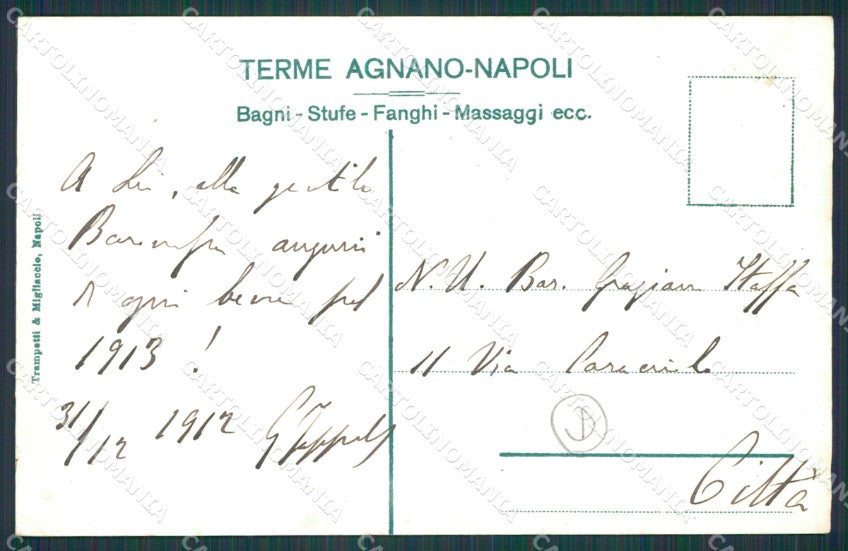 TERME AGNANO-NAPOLI
Bagni - Stufe - Fanghi - Massaggi ecc.
A Lei, alla gentile
auguri
ogni bene pel
1913!
31/12 1912
Trampetti & Migliaccio, Napoli
N. U. Bar. Staffa
11 Via
Città
CARTOLINOMANIA